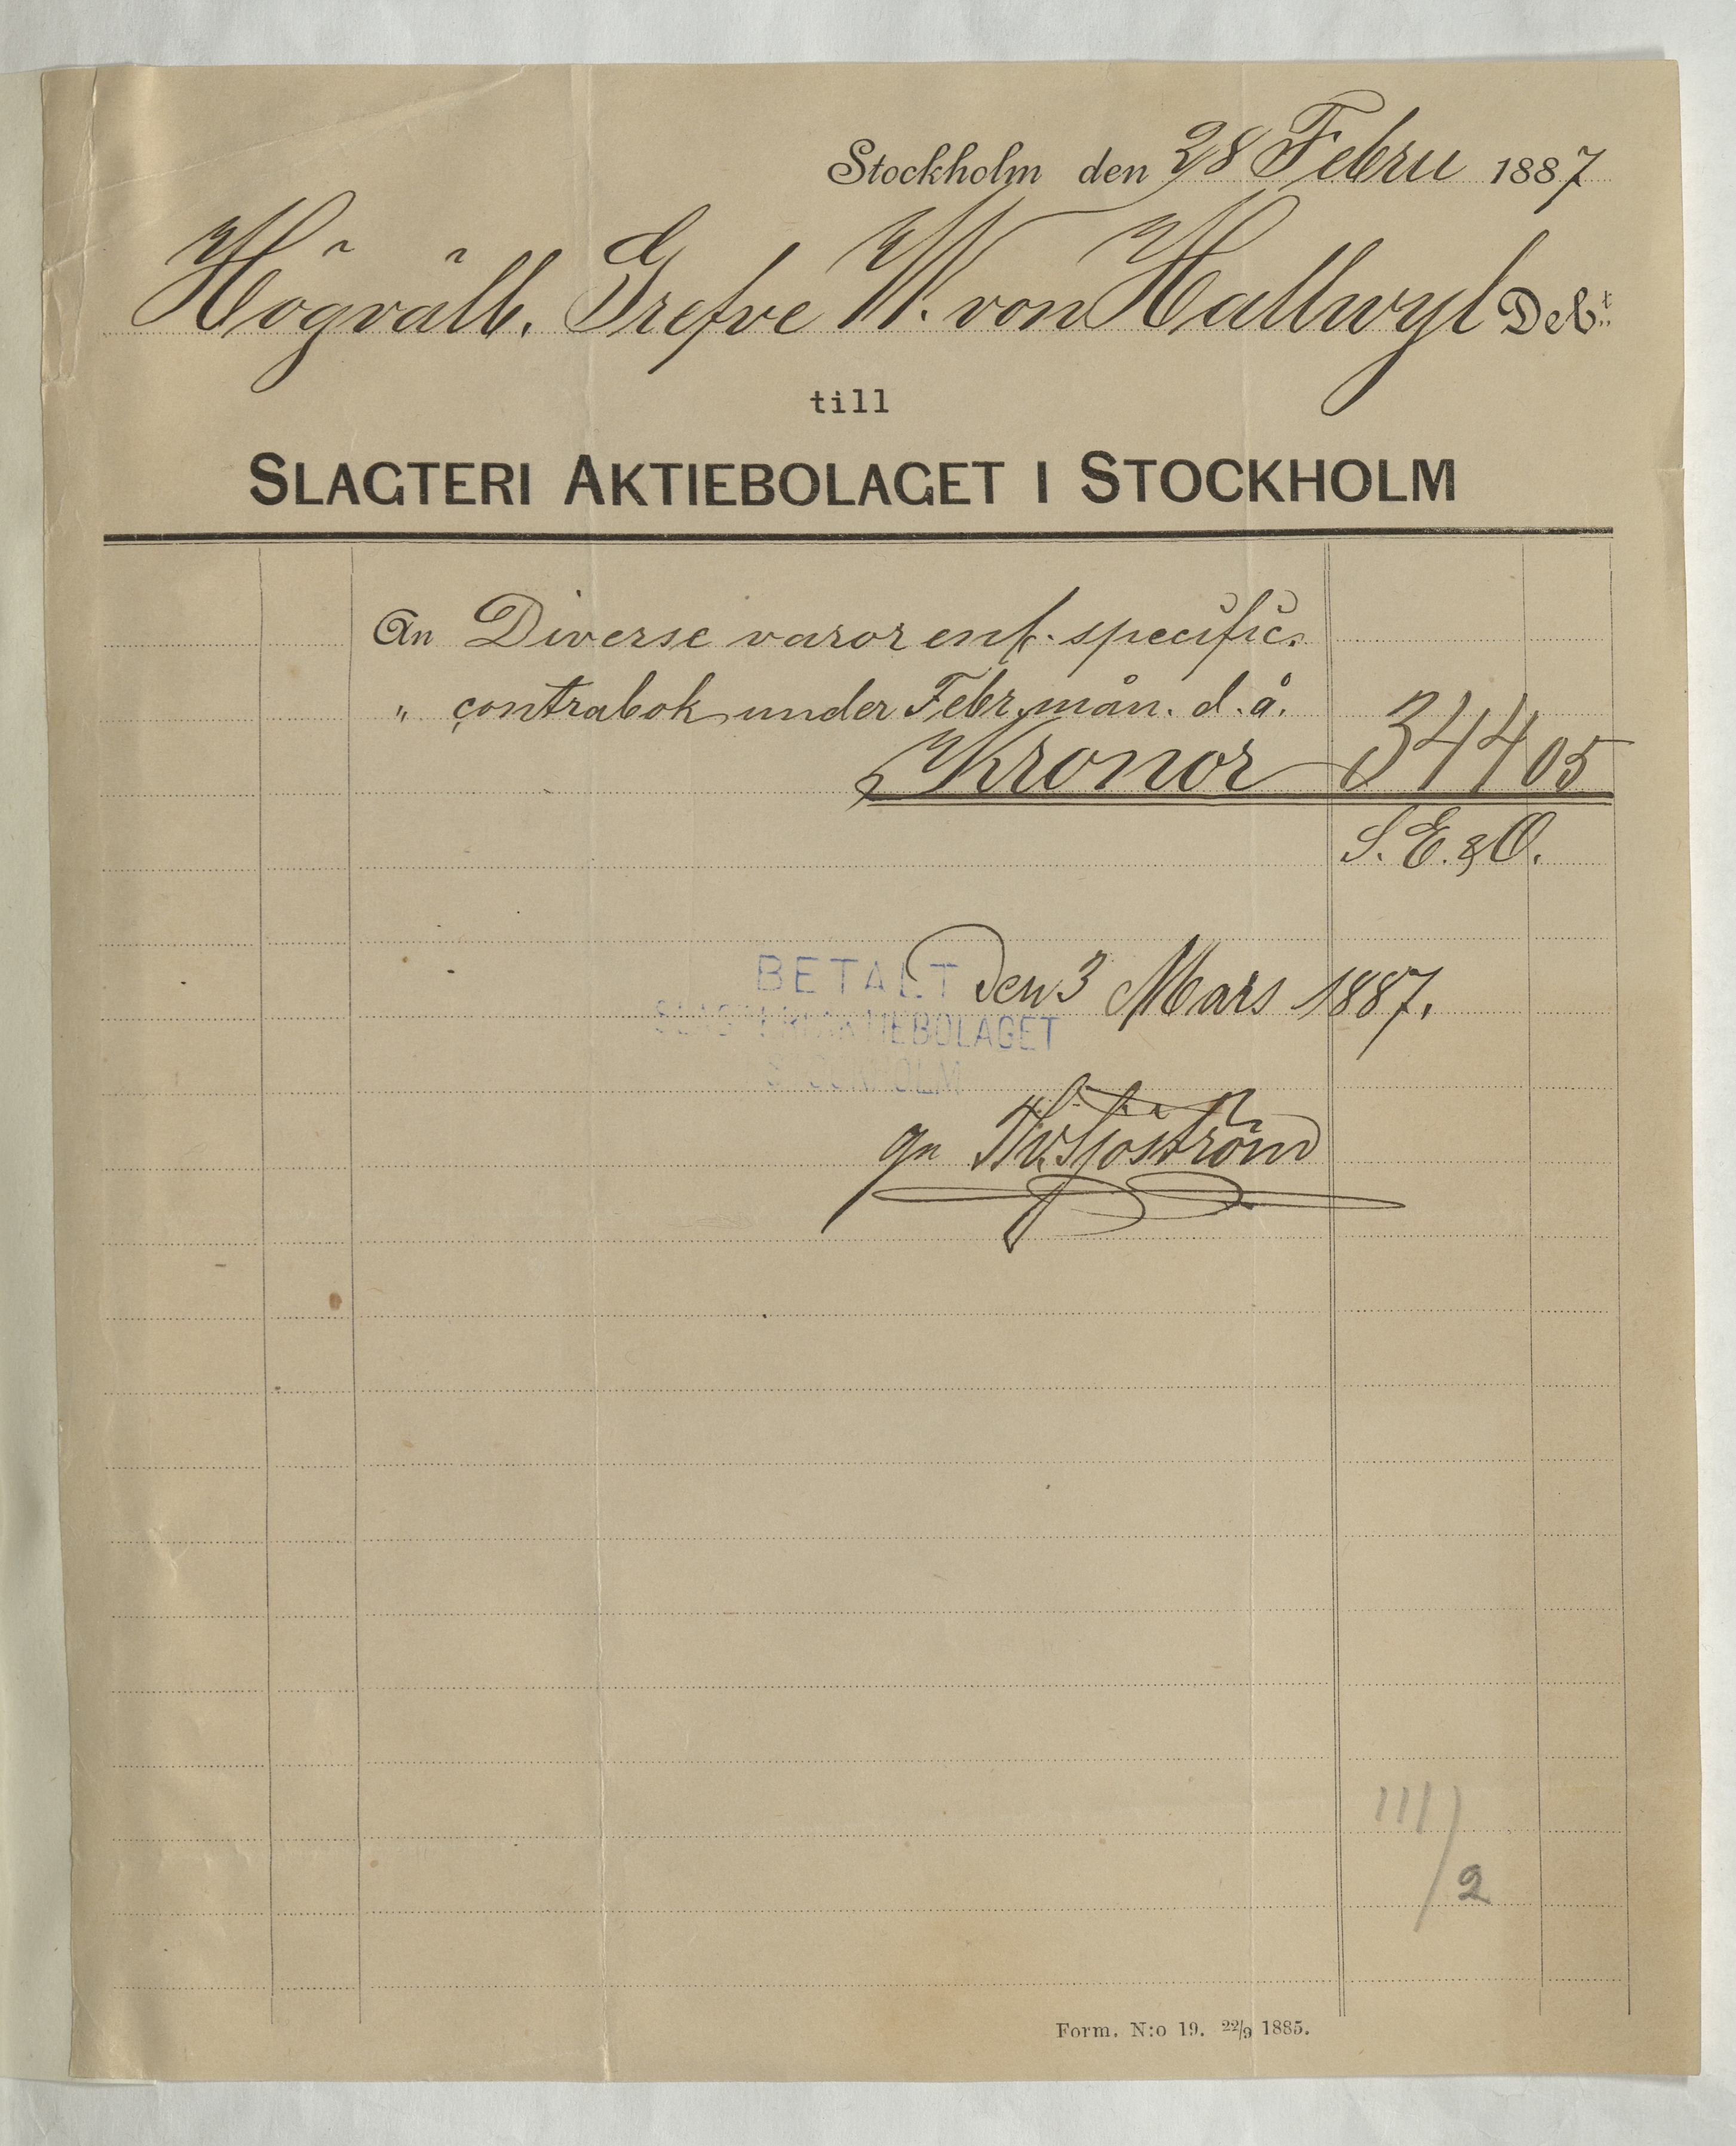 Stockholm den 28 Febru 1887
Högvälb. Grefve W. von Hallwyl Deb:t
till
SLAGTERI AKTIEBOLAGET I STOCKHOLM
An Diverse varor enl. specific.
" contrabok under Febr. mån. d. å.
Kronor 344 05
S. E. & O.
BETALT den 3 Mars 1887.
SLAGTERIAKTIEBOLAGET
STOCKHOLM
gm Sjöström
111/2
Form. N:o 19. 22/9 1885.